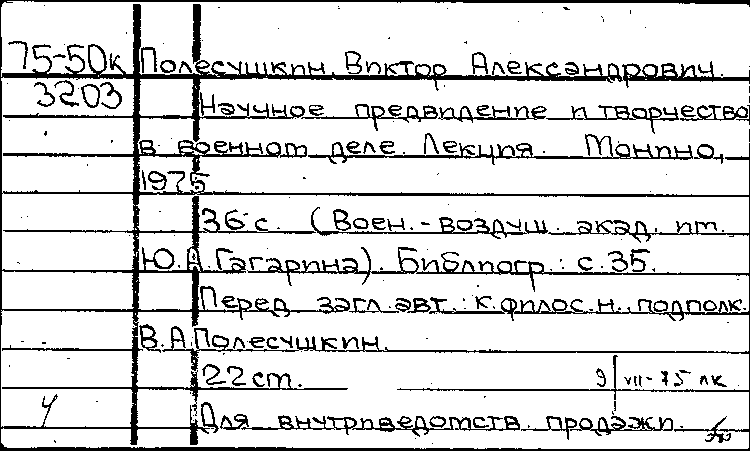 75-50к Полесушкин, Виктор Александрович.
3203 Научное предвидение и творчество
в военном деле. Лекция. Монино,
1975
36 с. (Воен.-воздуш. акад. им.
Ю.А.Гагарина). Библиогр.: с.35.
Перед загл. авт.: к.филос.н., подполк.
В.А.Полесушкин.
22 см. 9 VII-75 лк
Ч Для внутриведомств. продажи.